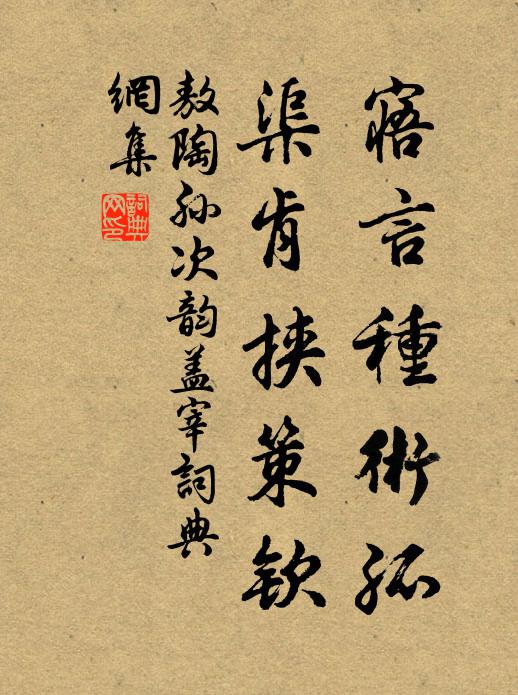 寤言種術孤
渠肯挾策欽
敖陶孫次韵盖宰詞典
網集
詞典
网印